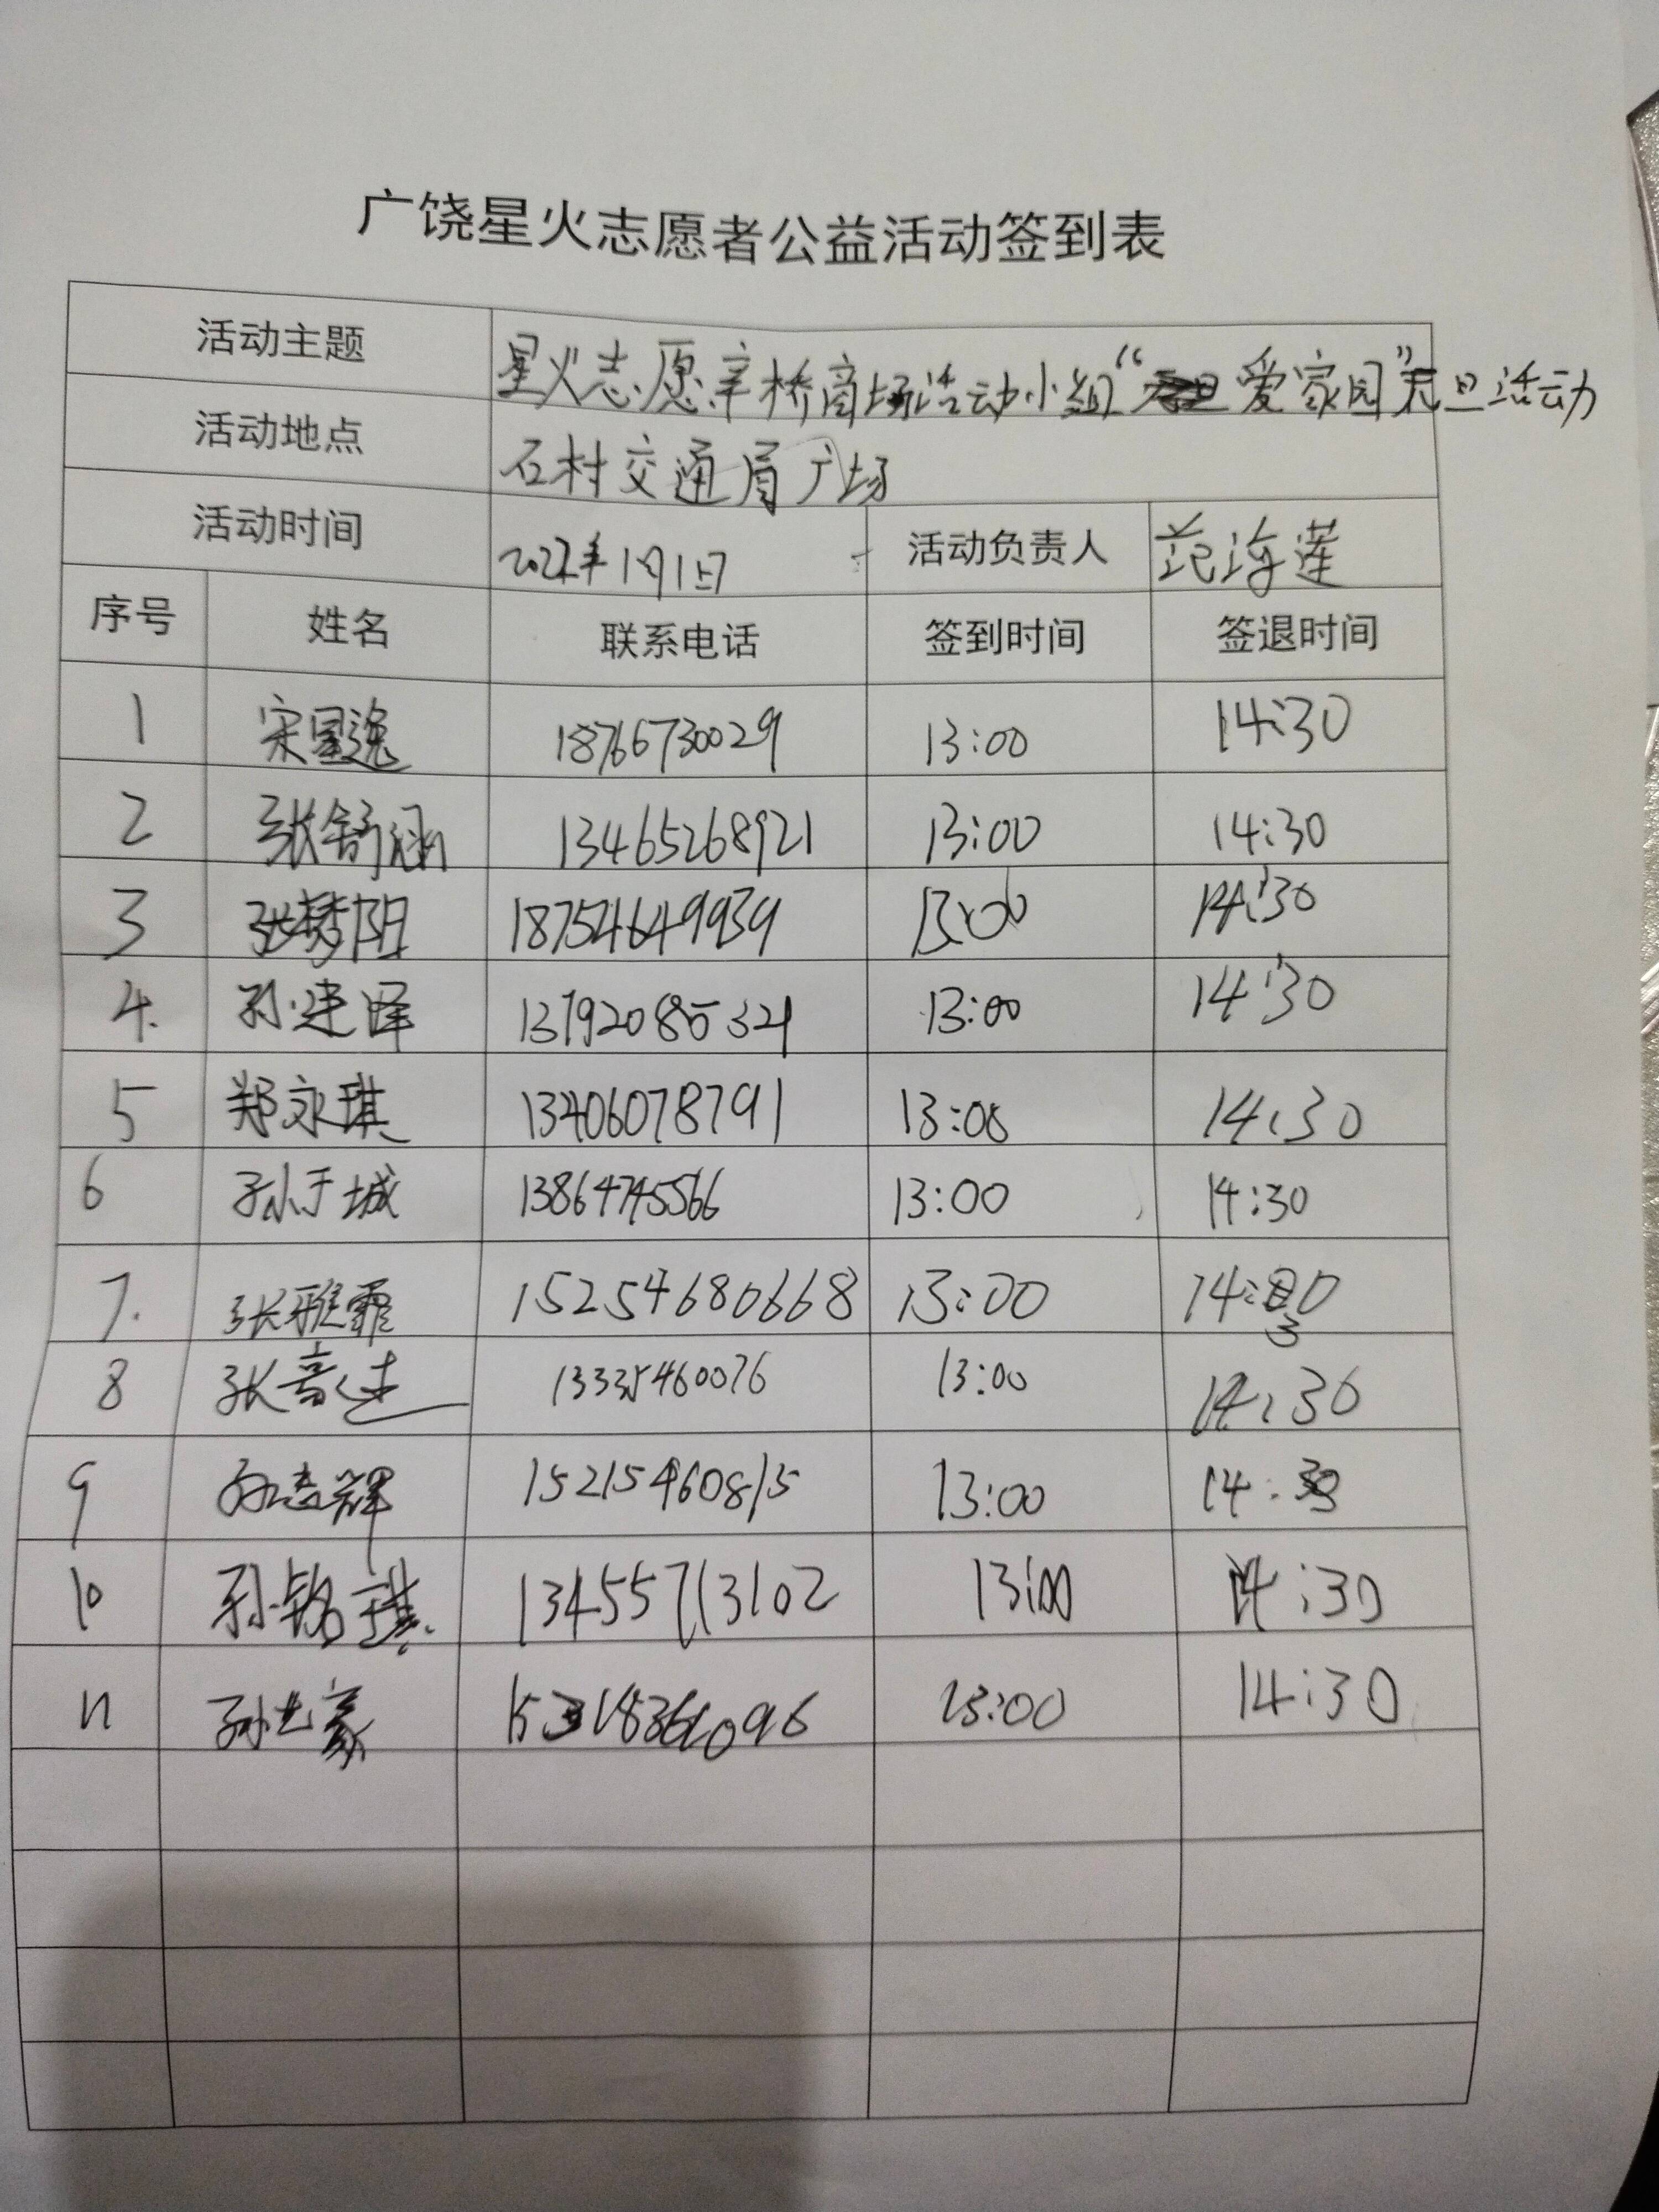 广饶星火志愿者公益活动签到表
活动主题 星火志愿辛桥商场活动小组“爱家园”元旦活动
活动地点 石村交通局广场
活动时间 2022年1月1日 活动负责人 范海莲
序号 姓名 联系电话 签到时间 签退时间
1 宋星逸 18766730029 13:00 14:30
2 张舒涵 13465268921 13:00 14:30
3 张梦阳 18754649939 13:00 14:30
4. 孙建泽 13792085321 13:00 14:30
5 郑永琪 13406078791 13:00 14:30
6 孙于城 13864745566 13:00 14:30
7. 张雅霏 15254680668 13:00 14:30
8 张高达 13335460076 13:00 14:30
9 孙志辉 15215460815 13:00 14:30
10 孙铭琪 13455713102 13:00 14:30
11 孙世豪 13:00 14:30